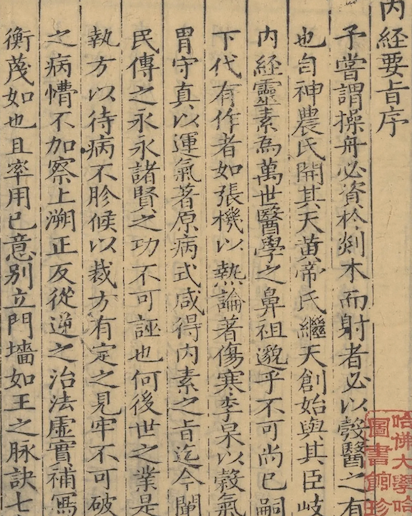 内經要旨序
予嘗謂操舟必資於剡木而射者必以彀醫之有
也自神農氏開其天黄帝氏繼天創始與其臣岐
内經靈素爲萬世醫學之鼻祖邈乎不可尚已嗣
下代有作者如張機以熱論著傷寒李杲以穀氣
胃守真以運氣著原病式咸得内素之旨迄今闡
民傳之永永諸賢之功不可誣也何後世之業是
執方以待病不胗候以裁方有定之見牢不可破
之病懵不加察上溯正反從逆之治法虚實補寫
衡蔑如也且率用已意别立門墻如王之脉訣七
哈佛大學哈
圖書館珍